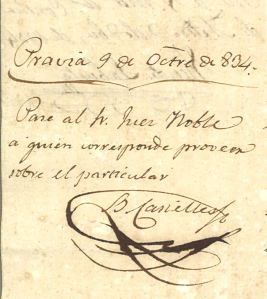 Pravia 9 de Octre de 834.
Pase al Sr. Juez Noble
a quien corresponde proveer
sobre el particular